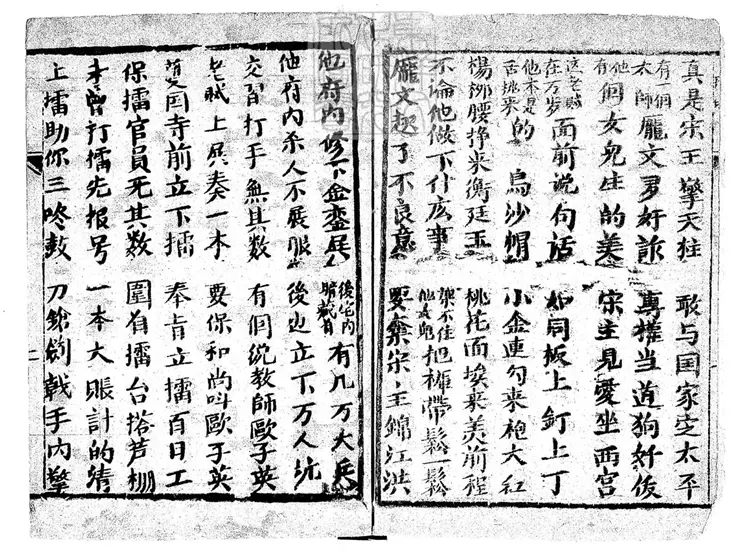 真是宋王擎天柱　敢与国家定太平
有一個太師龐文多奸詐　專權当道狗奸佞
他有個女兒生的美　宋主見愛坐西宮
这老賊在万岁面前说句话　如同板上釘上丁
他本是舌挑来的烏沙帽　小金連勾来袍大紅
楊柳腰挣来衡廷玉　桃花面挨来美前程
不论他做下什庅事　架不住他女兒把褲帶鬆一鬆
龐文起了不良意　要篡宋主錦江洪
他府内修下金鑾殿　後宅内暗藏着有几万大兵
他府内杀人不展眼　後边立下万人坑
交習打手無其数　有個總教師歐子英
老賊上殿奏一本　要保和尚叫歐子英
国寺前立下擂　奉旨立擂百日工
保擂官員无其数　圍着擂台搭芦棚
未曾打擂先报号　一本大賬計的清
上擂助你三咚鼓　刀鎗劍戟手内擎